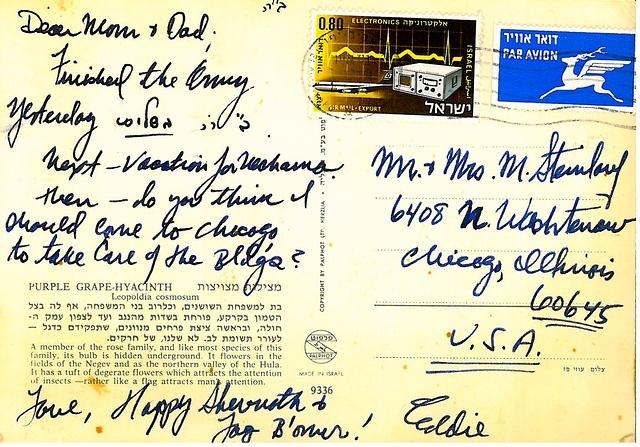 ב"ה
Dear Mom & Dad,
Finished the Army
Yesterday
Next - Vacation for Nechama
then - do you think I
should come to Chicago
to take care of the Bldgs?
PURPLE GRAPE-HYACINTH מצילות מצויצות
Leopoldia cosmosum
בת למשפחת השושנים, וכלרוב בני המשפחה, אף לה בצל
הטמון בקרקע, פורחת בשדות מהנגב ועד לצפון עמק ה-
חולה, ובראשה ציצת פרחים מנוונים, שתפקידם כדגל —
לעורר תשומת לב. לא שלנו, של חרקים.
A member of the rose family, and like most species of this
family, its bulb is hidden underground. It flowers in the
fields of the Negev and as the northern valley of the Hula.
It has a tuft of degerate flowers which attracts the attention
of insects —rather like a flag attracts man's attention.
Love, Happy Shevuoth &
Lag B'omer!
Eddie
COPYRIGHT BY PALPHOT LTD. HERZLIA
PALPHOT
MADE IN ISRAEL
9336
0.80 ELECTRONICS אלקטרוניקה
ISRAEL
דואר אויר
AIR MAIL-EXPORT
ישראל
דואר אוויר
PAR AVION
Mr. & Mrs. M. Stambary
6408 N. Washtenaw
Chicago, Illinois
60645
U.S.A.